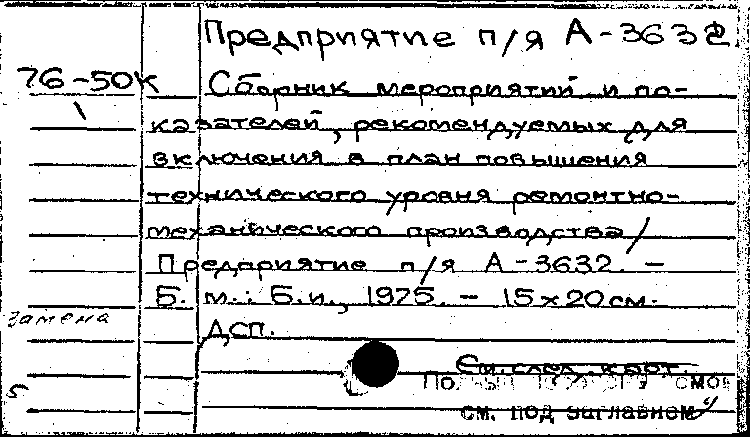 Предприятие п/я А-3632
76-50к Сборник мероприятий и по-
казателей, рекомендуемых для
включения в план повышения
технического уровня ремонтно-
механического производства/
Предприятие п/я А-3632. -
Б. м.: Б.и., 1975. - 15х20см.
замена
ДСП.
См. след. карт.
5
см. под заглавием